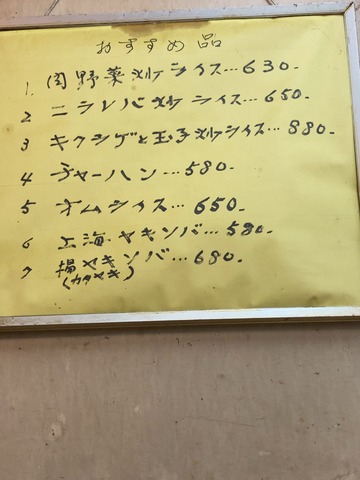 おすすめ品
1. 肉野菜炒ライス…630-
2 ニラレバ炒ライス…650-
3 キクラゲと玉子炒ライス…880-
4 チャーハン…580-
5 オムライス…650-
6 上海ヤキソバ…580-
7 揚ヤキソバ…680-
(カタヤキ)